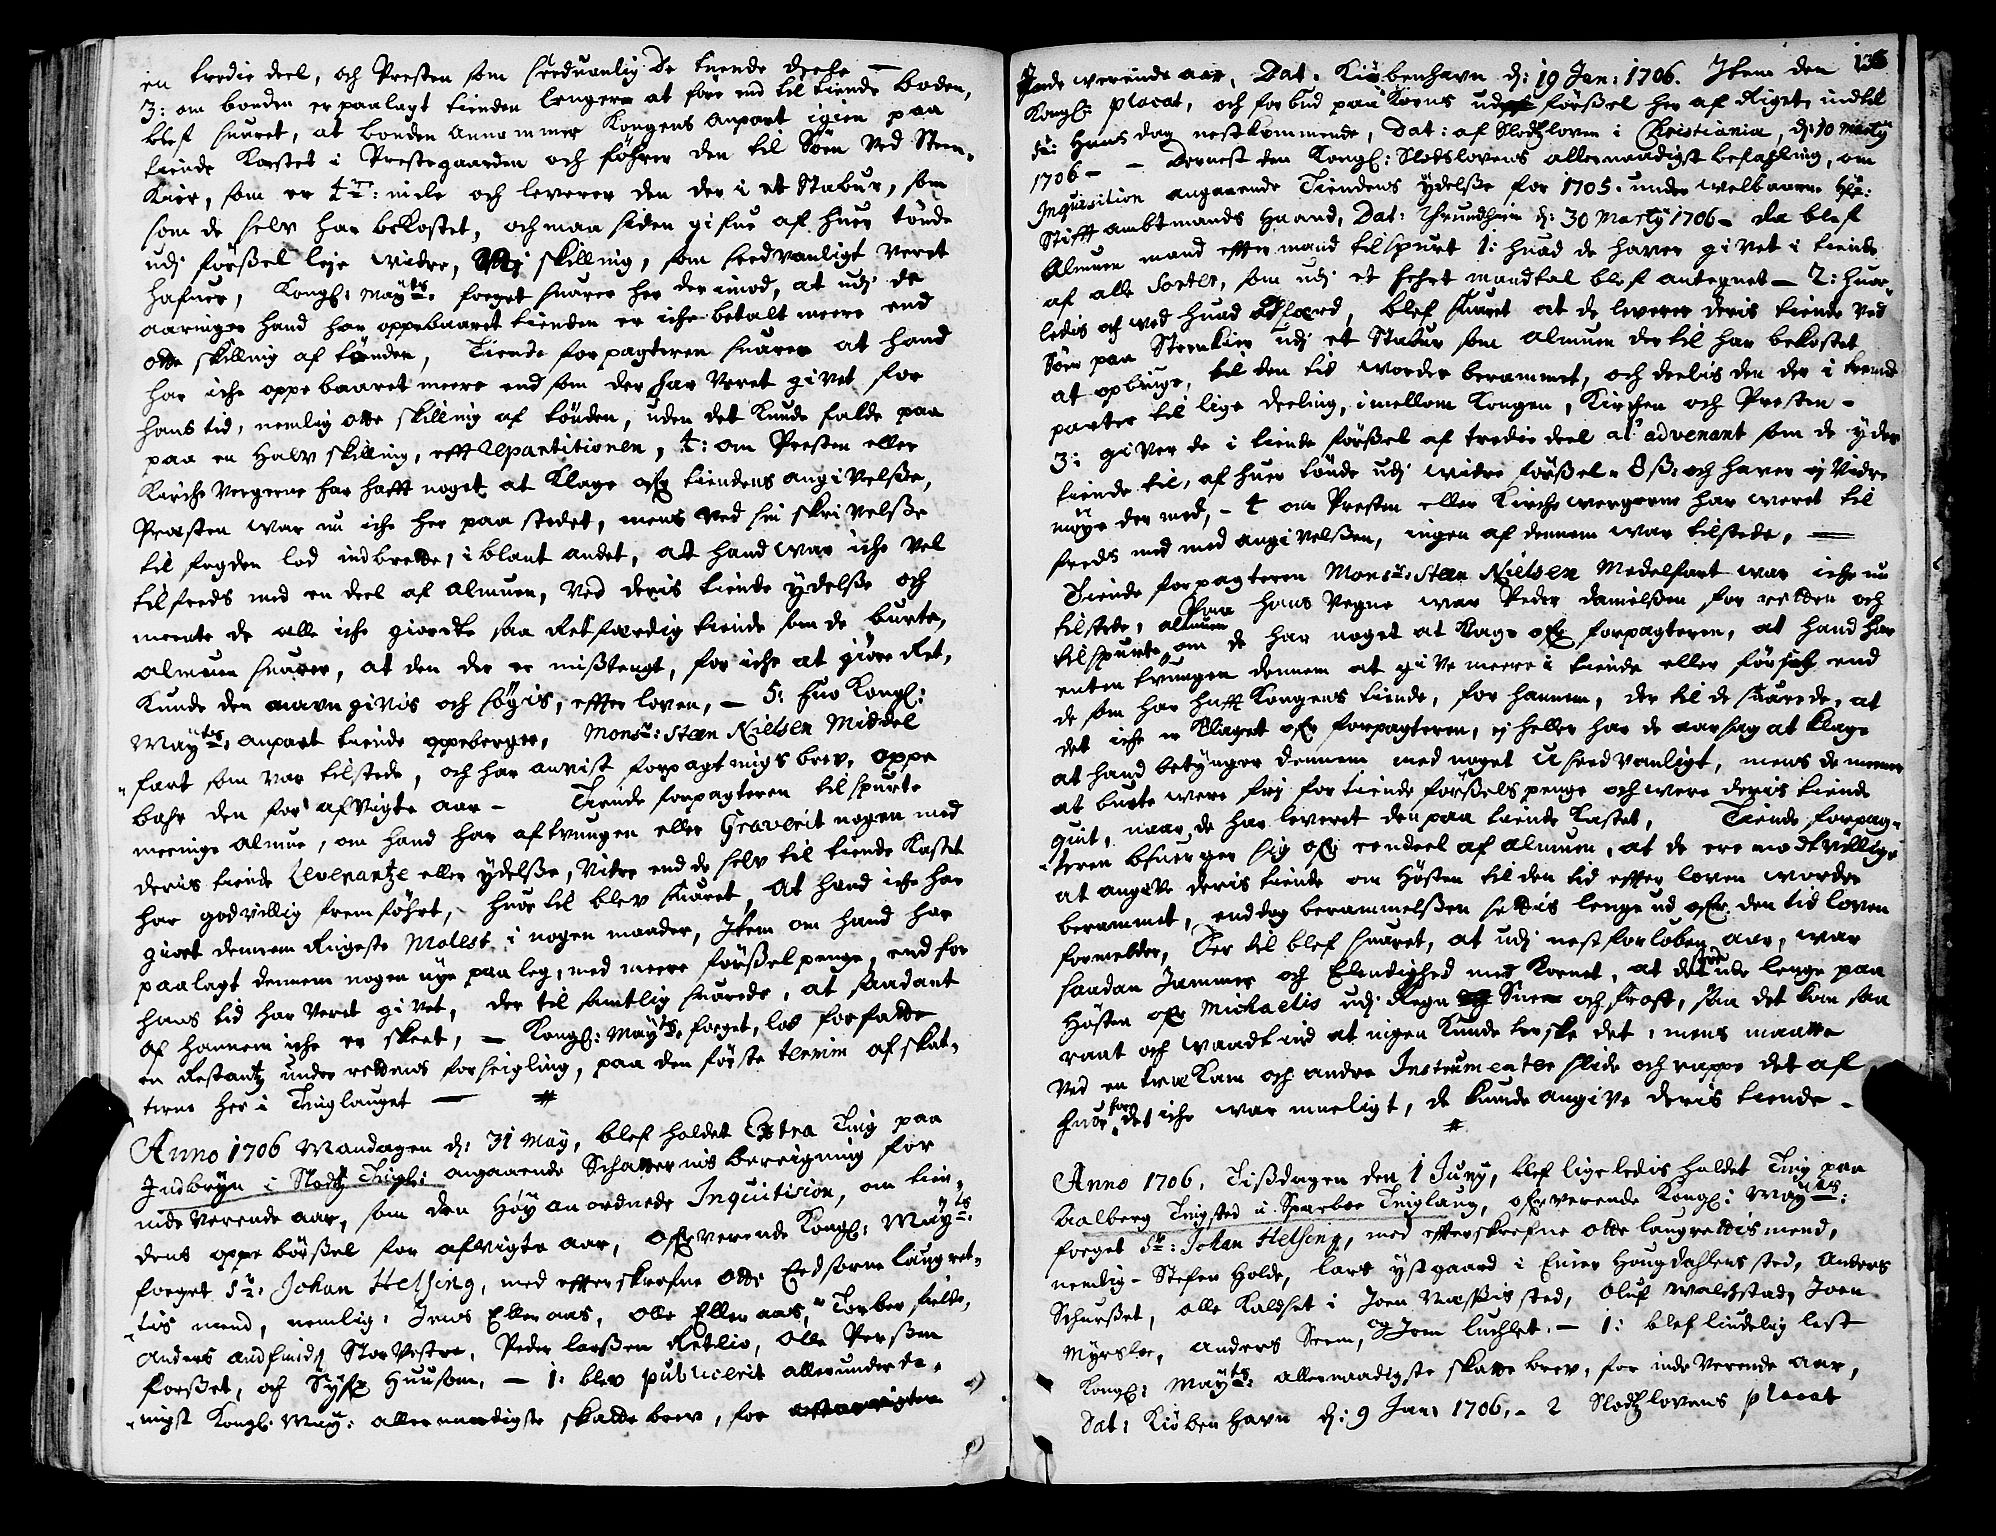 en tredie deel, och Presten som sædvanlig de tuende deele —
3: om bonden er paalagt tienden lengere at føre end til tiende boden,
blef suaret, at bonden annammer Kongens anpart igien paa
tiende Kastet i Prestegaarden och føhrer den til Søen ved Steen-
Kier, som er 1/4: mile och leverer den der i et Stabur, som
som de selv har bekostet, och maa siden gifue af huer tønde
udj førßel leje vidre, skilling, som sædvanligt veret
hafuer, Kongl: Mayts: foget suarer her derimod, at udj de
aaringer hand har oppebaaret tienden er iche betalt meere end
otte skilling af tønden, Tiende forpagteren suarer at hand
har iche oppebaaret meere end som der har veret givet for
hans tid, nemlig otte skilling af tønden, uden det kunde falde paa
paa en halv skilling, efft Repartitionen, 4: om Presten eller
Kirche Vergerne har hafft noget at Klage ofr tiendens angivelsße,
Præsten war nu iche her paa stedet, mens ved sin skrivelsße
til fogden lod indberette, i blant andet, att hand war iche vel
tilfreds med en deel af almuen, ved deris tiende ydelsße och
meente de alle iche giordte saa Retfærdig tiende som de burte,
Almuen suarer, at den der er mißtengt, for iche at giøre Ret,
Kunde den navn givis och søgis, effter loven, — 5: huo Kongl:
Mayts: anpart tiende oppeberger, Monsr: Steen Nielsen Middel
fart som var tilstede, och har anvist forpagtnings brev, oppe
bahr den for afvigte aar — Tiende forpagteren tilspurte
meenige Almue, om hand har aftvungen eller Graverit nogen med
deris tiende Leverantze eller ydelsße, Vidre end de selv til tiende Kastet
har godvillig fremføhrt, huor til blev suaret, At hand iche har
giort dennem Ringeste Molest i nogen maader, Item om hand har
paalagt dennem nogen nye paaleg, med meere førßelpenge, end for
hans tid har veret givet, der til samtlig suarede, at saadant
af hannem iche er skeet, — Kongl: Mayts: foget, lod forfatte
en Restantz under rettens forseigling, paa den første termin af skat-
terne her i Tinglauget —
Anno 1706 Mandagen d: 31 May, blef holdet Extra Ting paa
Indbryn i Stods Tingl: angaaende Schatternis beregning for
indeverende aar, som den Høy anordnede Inquitision, om tien-
dens oppebørßel for afvigte aar, ofrverende Kongl: Mayts:
foget Sr: Johan Helsing, med efftterskrefne otte Eedsorne laugret-
tis mend, nemlig: Jens Elleraas, Olle Elleraas, Torber fielde,
Anders Andfinds Stor Vestre, Peder Larßen Retlio, Olle Perßen
forßet, och Syfr Huusom, — 1: blev publicerit allerunderda-
nigst Kongl: May: allernaadigste skatte brev, for

136
Inde werende aar, Dat. Kiøbenhavn d: 19 Jan: 1706. Item den
Kongl: placat, och forbud paa Korns førßel her af Riget, indtil
St: Hans dag nestkommende, Dat: af Slodtzloven i Christiania, d: 10 Marty
1706 — Dernest den Kongl: Slodslovens allernaadigst befahling, om
Inquisition angaaende Tiendens ydelsße for 1705. under welbaarne Hr:
Stifft ambtmands Haand, Dat: Thrundhiem d: 30 Marty 1706 — Da blef
Almuen mand effter mand tilspurt 1: huad de haver givet i tiende
af alle Sorter, som udj et sehrt mandtal blef antegnet — 2: huor-
ledis och ved huad adfærd, blef suaret at de leverer deris tiende ved
Søen paa Steenkier udj et Stabur som almuen der til har bekostet
at opbyge, til den tid worder berammet, och deelis den der i trende
parter til lige deeling, imellom Kongen, Kirchen och Presten —
3: giver de i tiende førßel af tredie deel a' advenant som de yder
tiende til, af huer tønde udj widre førßel — 8 ß: och haver ej Vidre
møye der med, — 4 om Presten eller Kirchewergerne har weret til
freds med med angivelsßen, ingen af dennem war tilstede, —
Tiende forpagteren Monsr: Steen Nielsen Medelfart war iche nu
tilstede, Paa hans vegne war Peder Danielßen for retten och
tilspurte almuen om de har noget at Klage ofr forpagteren, at hand har
enten tvungen dennem at give meere i tiende eller førßel end
de som har hafft Kongens tiende, for hannem, der til de suarede, at
det iche er Klaget ofr forpagteren, ej heller har de aarsag at klage
at hand betynger dennem med noget usædvanligt, mens de meener
at burte were frj for tiende førßels penge och were deris tiende
quit, naar de har leveret den paa tiende Kastet, Tiende forpag-
teren besuerger sig ofr eendeel af almuen, at de ere modtvillige
at angive deris tiende om Høsten til den tid effter loven worder
berammet, enddog berammelsßen settis lenge ud ofr den tid loven
formelder, Der til blef suaret, at udj nestforløben aar, war
saadan Jammer och Elendighed med Kornet, at det stod ude lenge paa
Høsten ofr Michaelis udj Regn Snee och frost, saa det kom saa
raat och waadt ind at ingen Kunde terske det, mens maatte
ved en træ Kam och andre Instrumenter slide och nappe det af
huor fore det iche war mueligt, de kunde angive deris tiende —
Anno 1706, Tißdagen den 1 Juny, blef ligeledis holdet Ting paa
Aalberg Tingsted i Sparboe Tinglaug, ofrverende Kongl: Mayts:
foget Sr: Johan Helseng, med effterskrefne otte laugrettismend,
nemlig — Stefen Holde, lars ystgaard i Einer Hougdahlens sted, Anders
Schurßet, olle Kaldset i Joen Næßis sted, Oluf Walchstad, Joen
Myrsloe, Anders Seem, og Joen luchset. — 1: blef lindelig lest
Kongl: Mayts: allernaadigste skatte brev, for indeverende aar,
Dat: Kiøbenhavn d: 9 Jan: 1706, — 2 Slodtzlovens placat